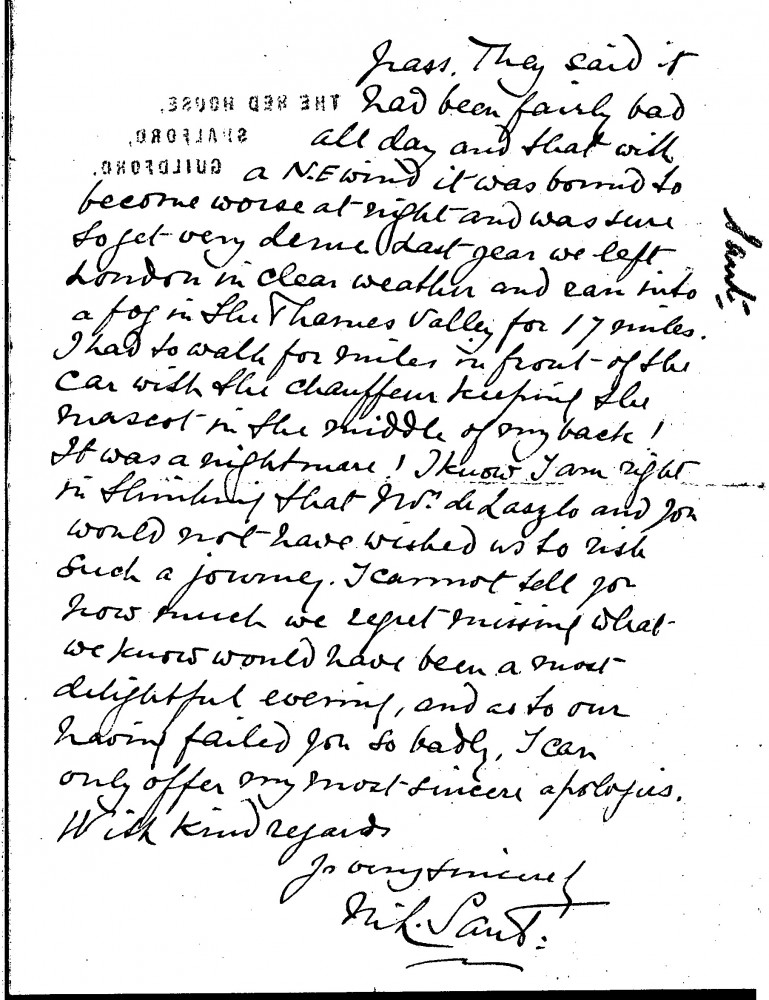 pass. They said it
had been fairly bad
all day and that with
a N.E wind it was bound to
become worse at night and was sure
to get very dense. Last year we left
London in clear weather and ran into
a fog in the Thames Valley for 17 miles.
I had to walk for miles in front of the
car with the chauffeur keeping the
mascot in the middle of my back!
It was a nightmare! I know I am right
in thinking that Mrs. de Laszlo and you
would not have wished us to risk
such a journey. I cannot tell you
how much we regret missing what
we know would have been a most
delightful evening, and as to our
having failed you so badly, I can
only offer my most sincere apologies.
With kind regards
Yr very sincerely
THE RED HOUSE,
SHALFORD,
GUILDFORD.